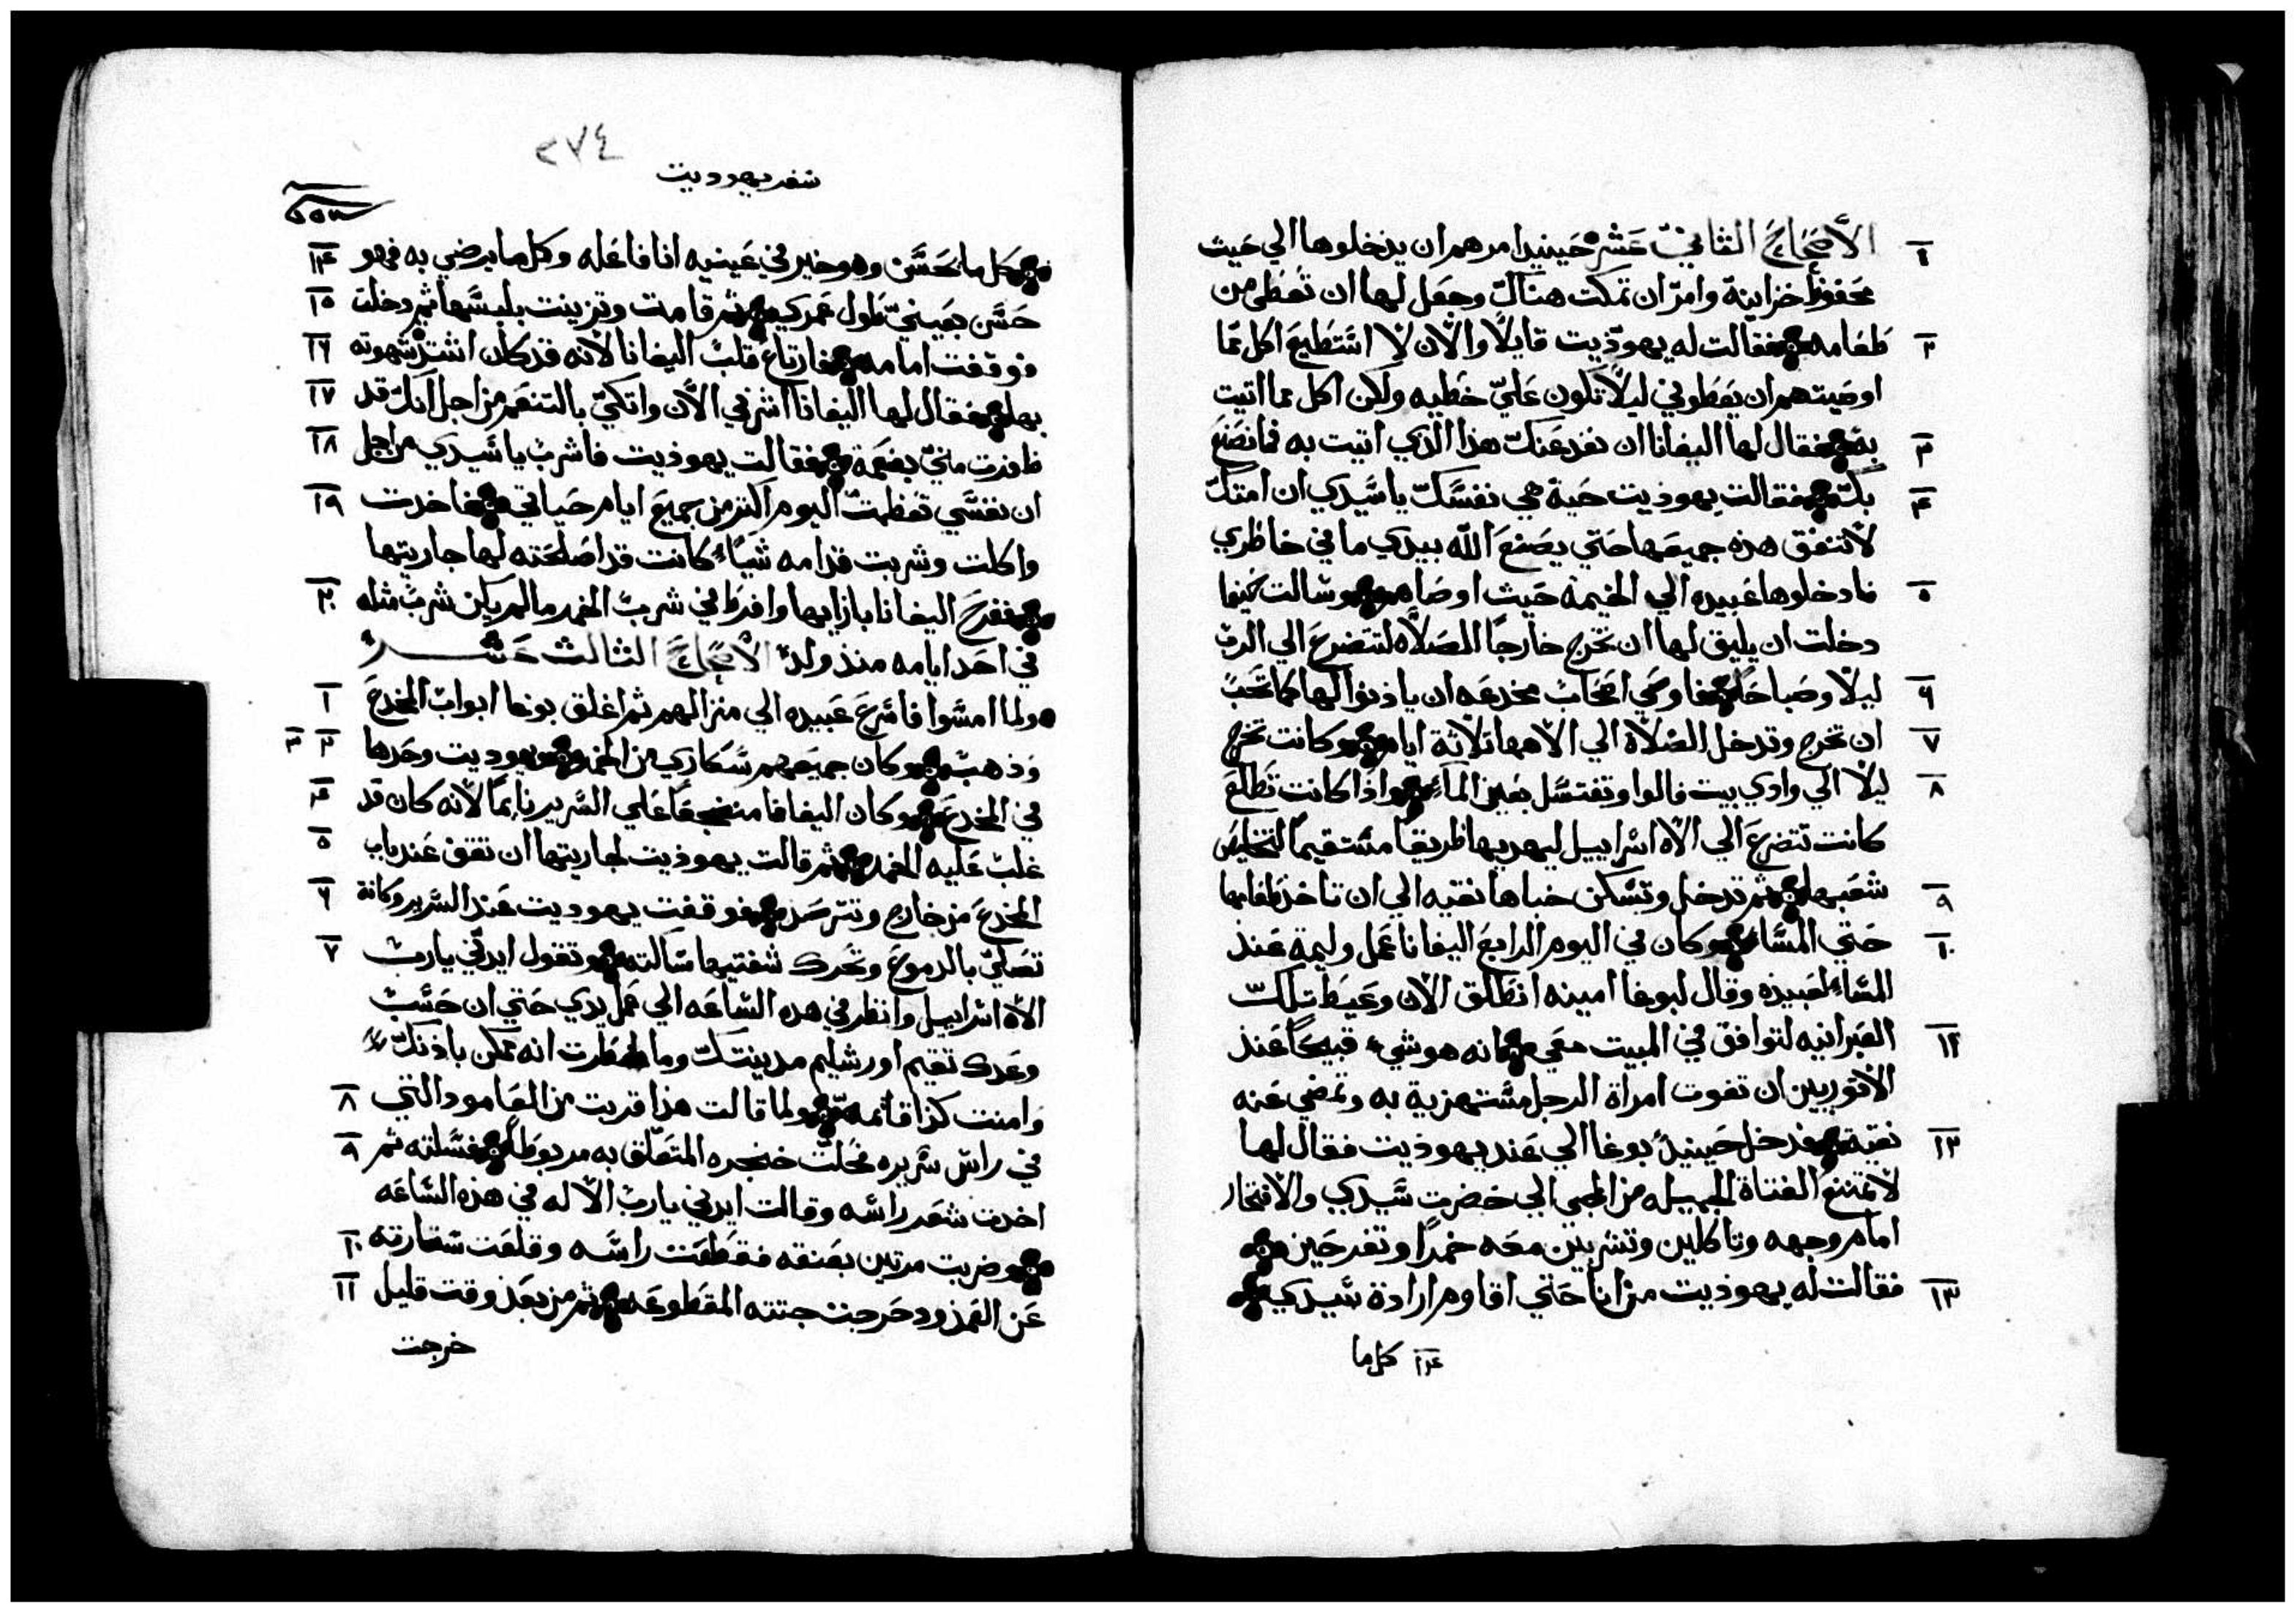 ١ الأصحاح الثاني عشر حينيد امرهم ان يدخلوها الي حيث
محفوظ خزاينه وامر ان تمكت هناك وجعل لها ان تعطى من
٢ طعامه فقالت له يهوديت قايلاً والان لا استطيع اكل مما
اوصيتهم ان يعطوني ليلا تكون عليّ خطيه ولكن اكل مما اتيت
٣ به فقال لها اليفانا ان نفد عنك هذا الذي اتيت به فما نصنع
٤ بك فقالت يهوذيت حية هي نفسك يا سيدي ان امتك
لا تنفق هذه جميعها حتي يصنع الله بيدي ما في خاطري
٥ فادخلوها عبيده الي الخيمه حيث اوصاهم وسالت كيما
دخلت ان يليق لها ان تخرج خارجاً للصلاه لتتضرع الي الرب
٦ ليلاً وصباحاً فاوصي اصحاب مخدعه ان ياذنوا لها كما تحب
٧ ان تخرج وتدخل للصلاة الي الاهها تلاثة ايام وكانت تخرج
٨ ليلاً الي وادي بيت فالوا وتغتسل بعين الماء واذا كانت تطلع
كانت تتضرع الي الاه اسراييل ليهديها طريقاً مستقيماً لتخليص
٩ شعبها ثم تدخل وتسكن خباها نقيه الي ان تاخذ طعامها
١٠ حتي المساء وكان في اليوم الرابع اليفانا عمل وليمة عند
المساء لعبيده وقال لبوغا امينه انطلق الان وعيط تلك
١١ العبرانيه لتوافق في المبيت معي فانه هو شيء قبيحاً عند
الاتوريين ان تفوت امراة الرجل مستهزية به وتمضي عنه
١٢ نقية فدخل حينيد بوغا الي عند يهوذيت فقال لها
لا تمتنع الفتاة الجميله من المجي الي حضرت سيدي والافتخار
امام وجهه وتاكلين وتشربين معه خمراً وتفرحين
١٣ فقالت له يهوذيت من انا حتي اقاوم ارادة سيدي
١٤ كل ما
٢٧٤
سفر يهوديت
كل ما يحسن وهو خير في عينيه انا فاعله وكل ما يرضي به فهو ١٤
حسن بعينيّ طول عمري ثم قامت وتزينت بلبسها ثم دخلت ١٥
فوقفت امامه فارتاع قلب اليفانا لانه قد كان اشتد شهوته ١٦
بها فقال لها اليفانا اشربي الان واتكيّ بالتنعم من اجل انك قد ١٧
ظفرت منيّ بنعمة فقالت يهوذيت فاشرب يا سيدي من اجل ١٨
ان نفسي تعظمت اليوم اكتر من جميع ايام حياتي فاخدت ١٩
واكلت وشربت قدامه شياء كانت قد اصلحته لها جاريتها
ففرح اليفانا بازايها وافرط في شرب الخمر ما لم يكن شرب مثله ٢٠
في احد ايامه منذ ولد الأصحاح الثالث عشر
ولما امسوا فاسرع عبيده الي منزالهم ثم اغلق بوغا ابواب المخدع ١
وذهب وكان جميعهم سكاري من الخمر ويهوديت وحدها ٢ ٣
في المخدع وكان اليفانا منضجعاً علي السرير نايماً لانه كان قد ٤
غلب عليه الخمر ثم قالت يهوذيت لجاريتها ان تقف عند باب ٥
المخدع من خارج وتترصد فوقفت يهوديت عند السرير وكانة ٦
تصليّ بالدموع وتحرك شفتيها ساكته وتقول ايدني يارب ٧
الاه اسراييل وانظر في هده الساعه الي عمل يدي حتي ان حسب
وعدك تقيم اورشليم مدينتك وما افتكرت انه ممكن باذنك
وامنت كذا فاتمه ولما قالت هذا قربت من العامود التي ٨
في راس سريره فحلت خنجره المتعلق به مربوطاً فسلته ثم ٩
اخدت شعر راسه وقالت ايدني يارب الاله في هذه الساعه
وضربت مرتين بعنقه فقطعت راسه وقلعت ستارته ١٠
عن العمد ودحرجت جتته المقطوعه ثم من بعد وقت قليل ١١
خرجت